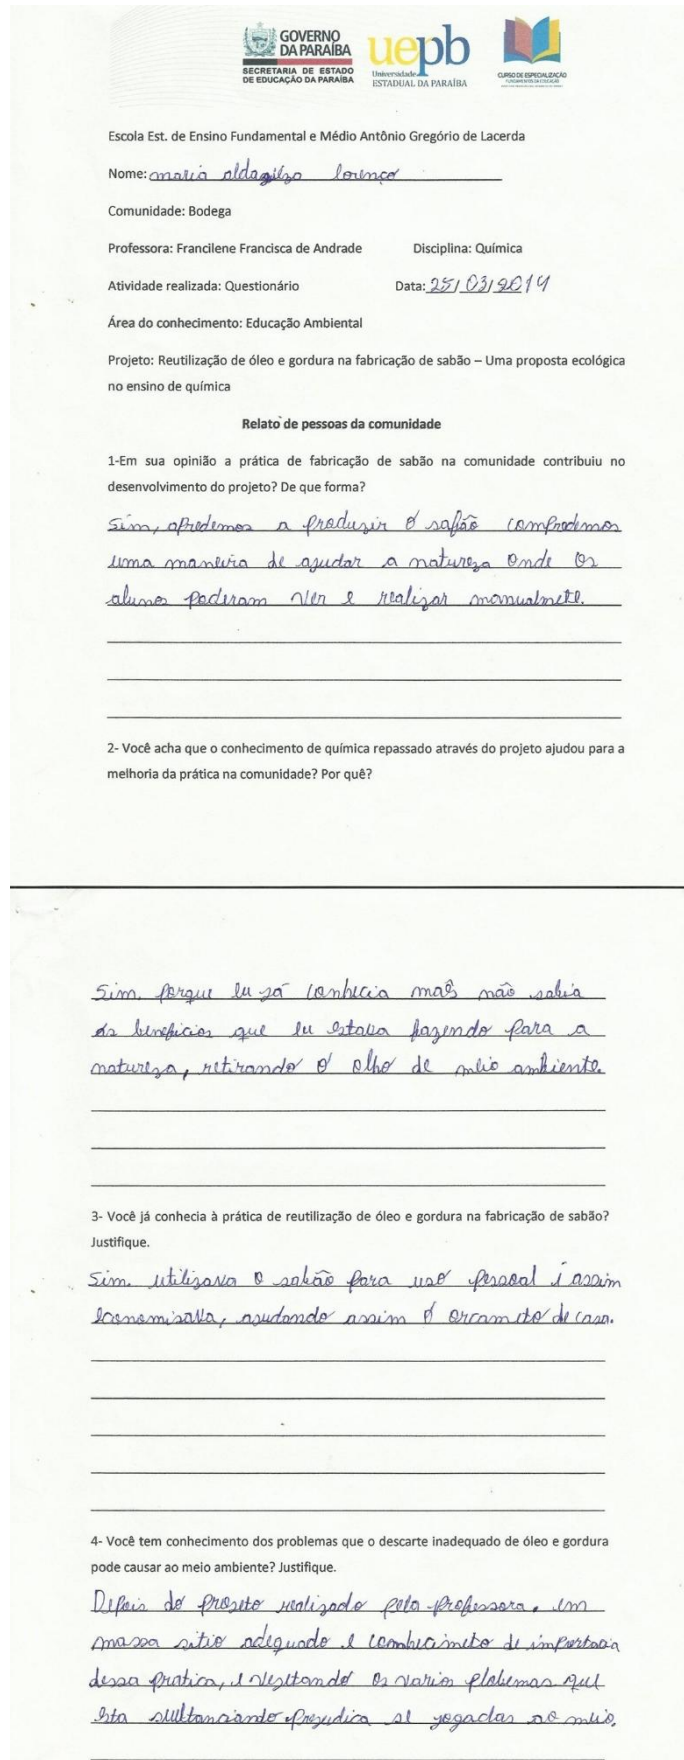 GOVERNO
DA PARAÍBA
SECRETARIA DE ESTADO
DE EDUCAÇÃO DA PARAÍBA
uepb
Universidade
ESTADUAL DA PARAÍBA
CURSO DE ESPECIALIZAÇÃO
FUNDAMENTOS DA EDUCAÇÃO
Escola Est. de Ensino Fundamental e Médio Antônio Gregório de Lacerda
Nome: maria aldagilza lorenço
Comunidade: Bodega
Professora: Francilene Francisca de Andrade Disciplina: Química
Atividade realizada: Questionário Data: 25/03/2014
Área do conhecimento: Educação Ambiental
Projeto: Reutilização de óleo e gordura na fabricação de sabão – Uma proposta ecológica
no ensino de química
Relato de pessoas da comunidade
1-Em sua opinião a prática de fabricação de sabão na comunidade contribuiu no
desenvolvimento do projeto? De que forma?
Sim, apredemos a produzir o sabão compredemos
uma maneira de ajudar a natureza onde os
alunos poderam ver e realizar manualmete.
2- Você acha que o conhecimento de química repassado através do projeto ajudou para a
melhoria da prática na comunidade? Por quê?
Sim. porque eu já conhecia mas não sabia
os beneficios que eu estava fazendo para a
natureza, retirando o olho de meio ambiente.
3- Você já conhecia à prática de reutilização de óleo e gordura na fabricação de sabão?
Justifique.
Sim. utilizava o sabão para uso pessoal i assim
economisava, ajudando assim o orcamito de casa.
4- Você tem conhecimento dos problemas que o descarte inadequado de óleo e gordura
pode causar ao meio ambiente? Justifique.
Depois do projeto realizado pela professora. em
sitio e de
dessa pratica, os varios que
esta prejudica se jogadas no meio.